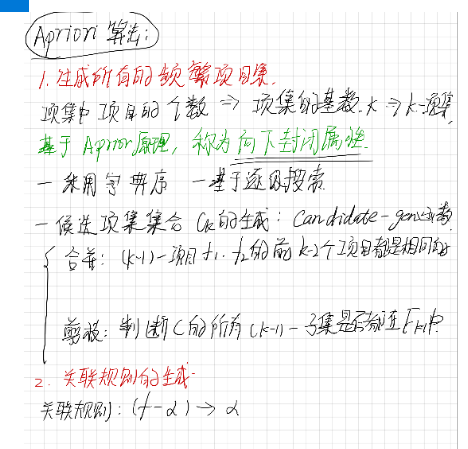 Apriori 算法:
1. 生成所有的频繁项目集.
项集中项目的个数 => 项集的基数. k => k-项集
基于 Apriori原理, 称为向下封闭属性.
- 采用字典序 - 基于逐级搜索
- 候选项集集合 Ck的生成: Candidate-gen函数
合并: (k-1)-项目 f1. f2的前 k-2个项目都是相同的
剪枝: 判断C的所有 (k-1)-子集是否都在Fk-1中.
2. 关联规则的生成.
关联规则: (f-α) → α